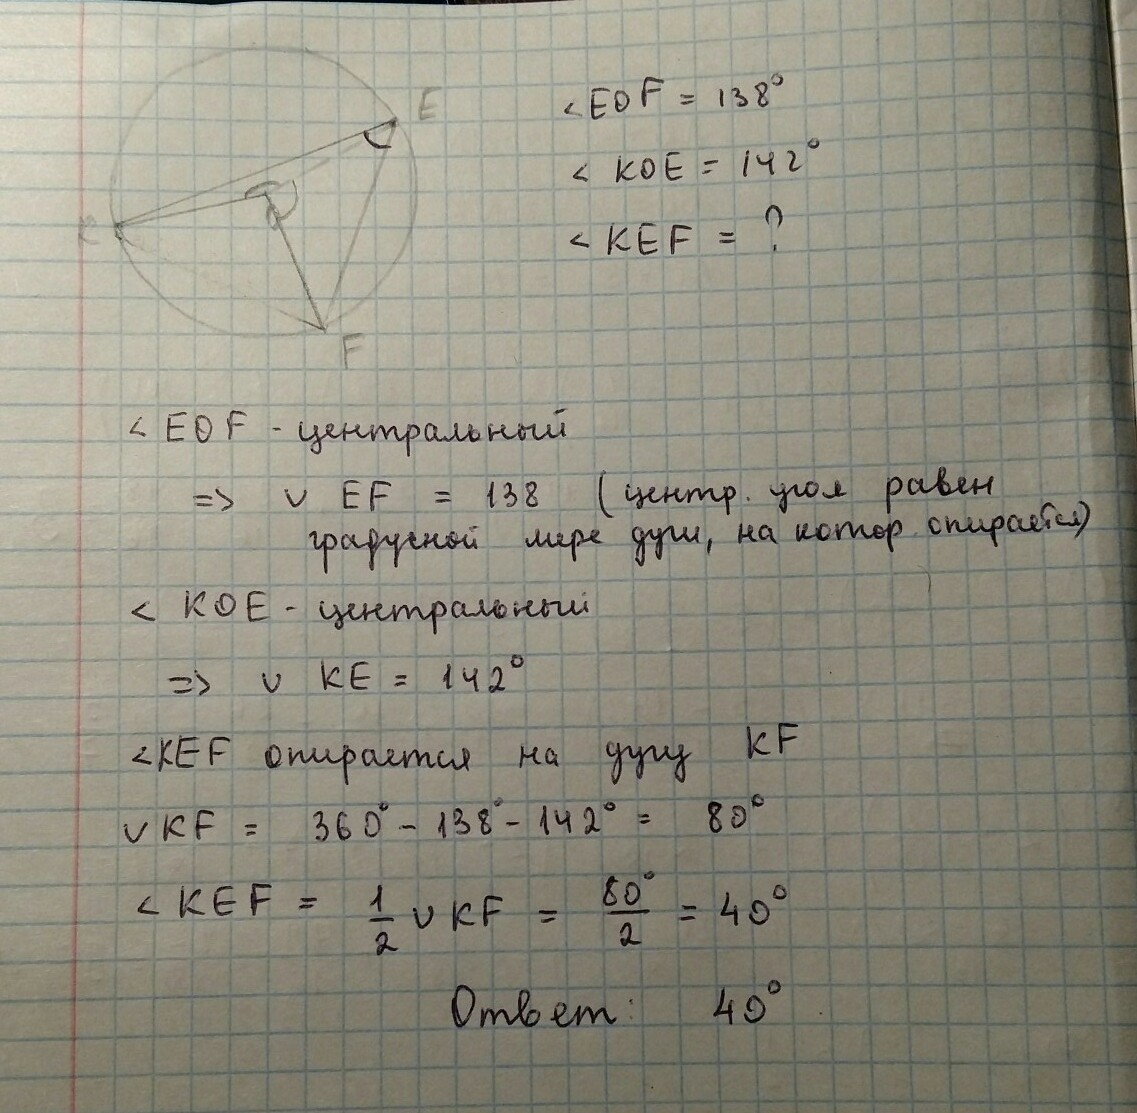 E
K
O
F
<EOF = 138°
< KOE = 142°
< KEF = ?
< EOF - центральный
=> ∪ EF = 138 (центр. угол равен
градусной мере дуги, на котор. опирается)
< KOE - центральный
=> ∪ KE = 142°
<KEF опирается на дугу KF
∪KF = 360° - 138° - 142° = 80°
< KEF = 1/2 ∪ KF = 80°/2 = 40°
Ответ: 40°